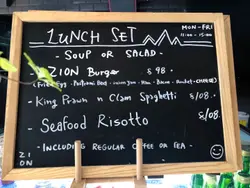 LUNCH SET
MON-FRI
11:00 - 15:00
- SOUP OR SALAD -
- ZION Burger $98.-
(Fried Egg · Portobello · Beef · · Ham · Bacon · Rocket · CHEESE)
- King Prawn n Clam Spaghetti $108.-
- Seafood Risotto $108.-
- INCLUDING REGULAR COFFEE OR TEA -
ZI
ON